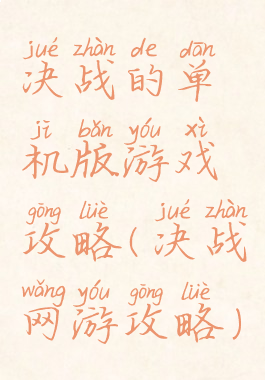 jué zhàn de dān
决战的单
jī bǎn yóu xì
机版游戏
gōng lüè jué zhàn
攻略(决战
wǎng yóu gōng lüè
网游攻略)